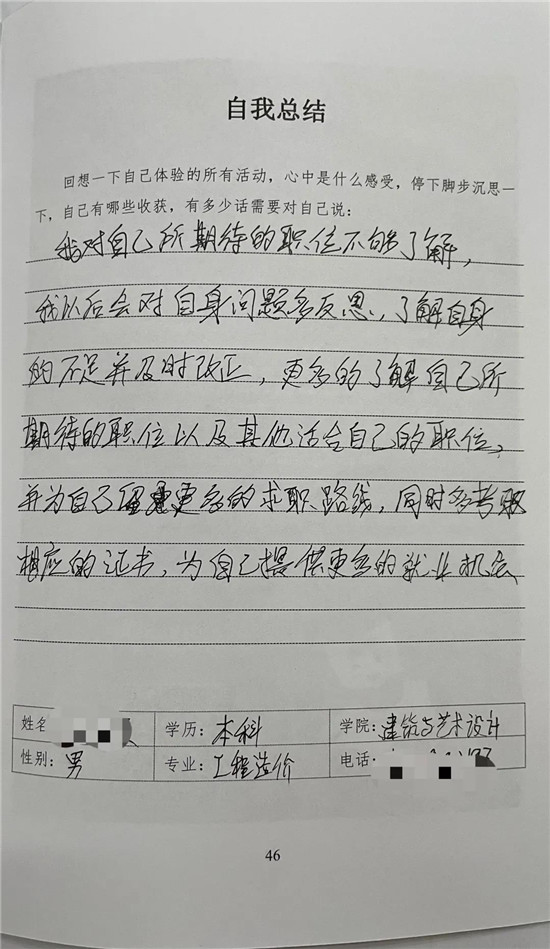 自我总结
回想一下自己体验的所有活动，心中是什么感受，停下脚步沉思一
下，自己有哪些收获，有多少话需要对自己说：
我对自己所期待的职位不够了解，
我以后会对自身问题多反思，了解自身
的不足并及时改正，更多的了解自己所
期待的职位以及其他适合自己的职位，
并为自己更多的求职路线，同时多考取
相应的证书，为自己提供更多的就业机会
姓名 学历：本科 学院：建筑与艺术设计
性别：男 专业：工程造价 电话：
46